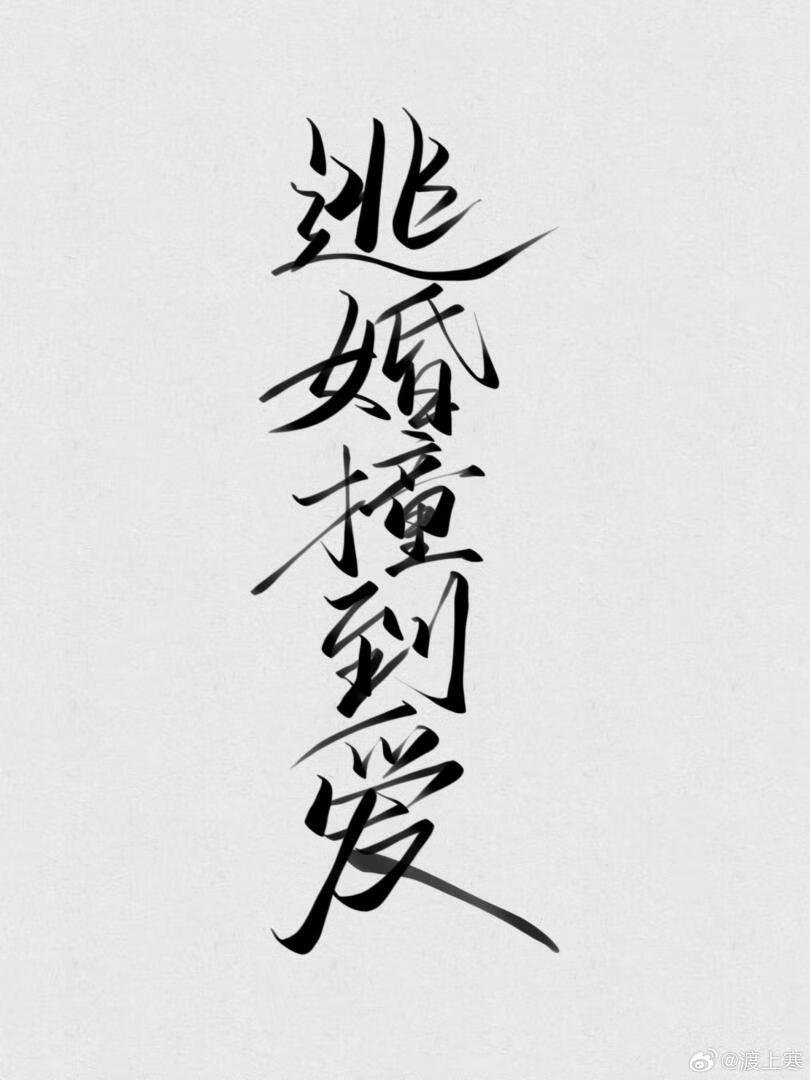 逃婚撞到爱
@渡上寒